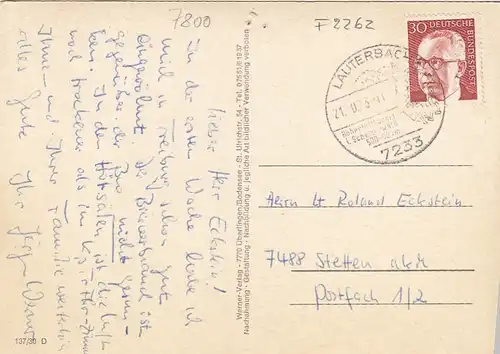 7800
F 2262
30 DEUTSCHE
BUNDESPOST
LAUTERBACH
7233
Lieber Herr Eckstein!
In der ersten Woche habe ich
mich in Freiburg schon gut
eingewöhnt. Der Bereverband ist
gegenüber der Büro nicht
ben. In den Hörsälen ist die Luft
noch trockener als in
Ihnen und Ihrer Familie weiterhin
alles Gute
Ihr
Herrn Lt. Roland Eckstein
7488 Stetten a.k.M
Postfach 1/2
Werner-Verlag - 7770 Überlingen/Bodensee - St. Ulrichstr. 54 - Tel. 07551/61937
Nachahmung - Gestaltung - Nachbildung u. jegliche Art bildlicher Verwendung verboten
137/30 D